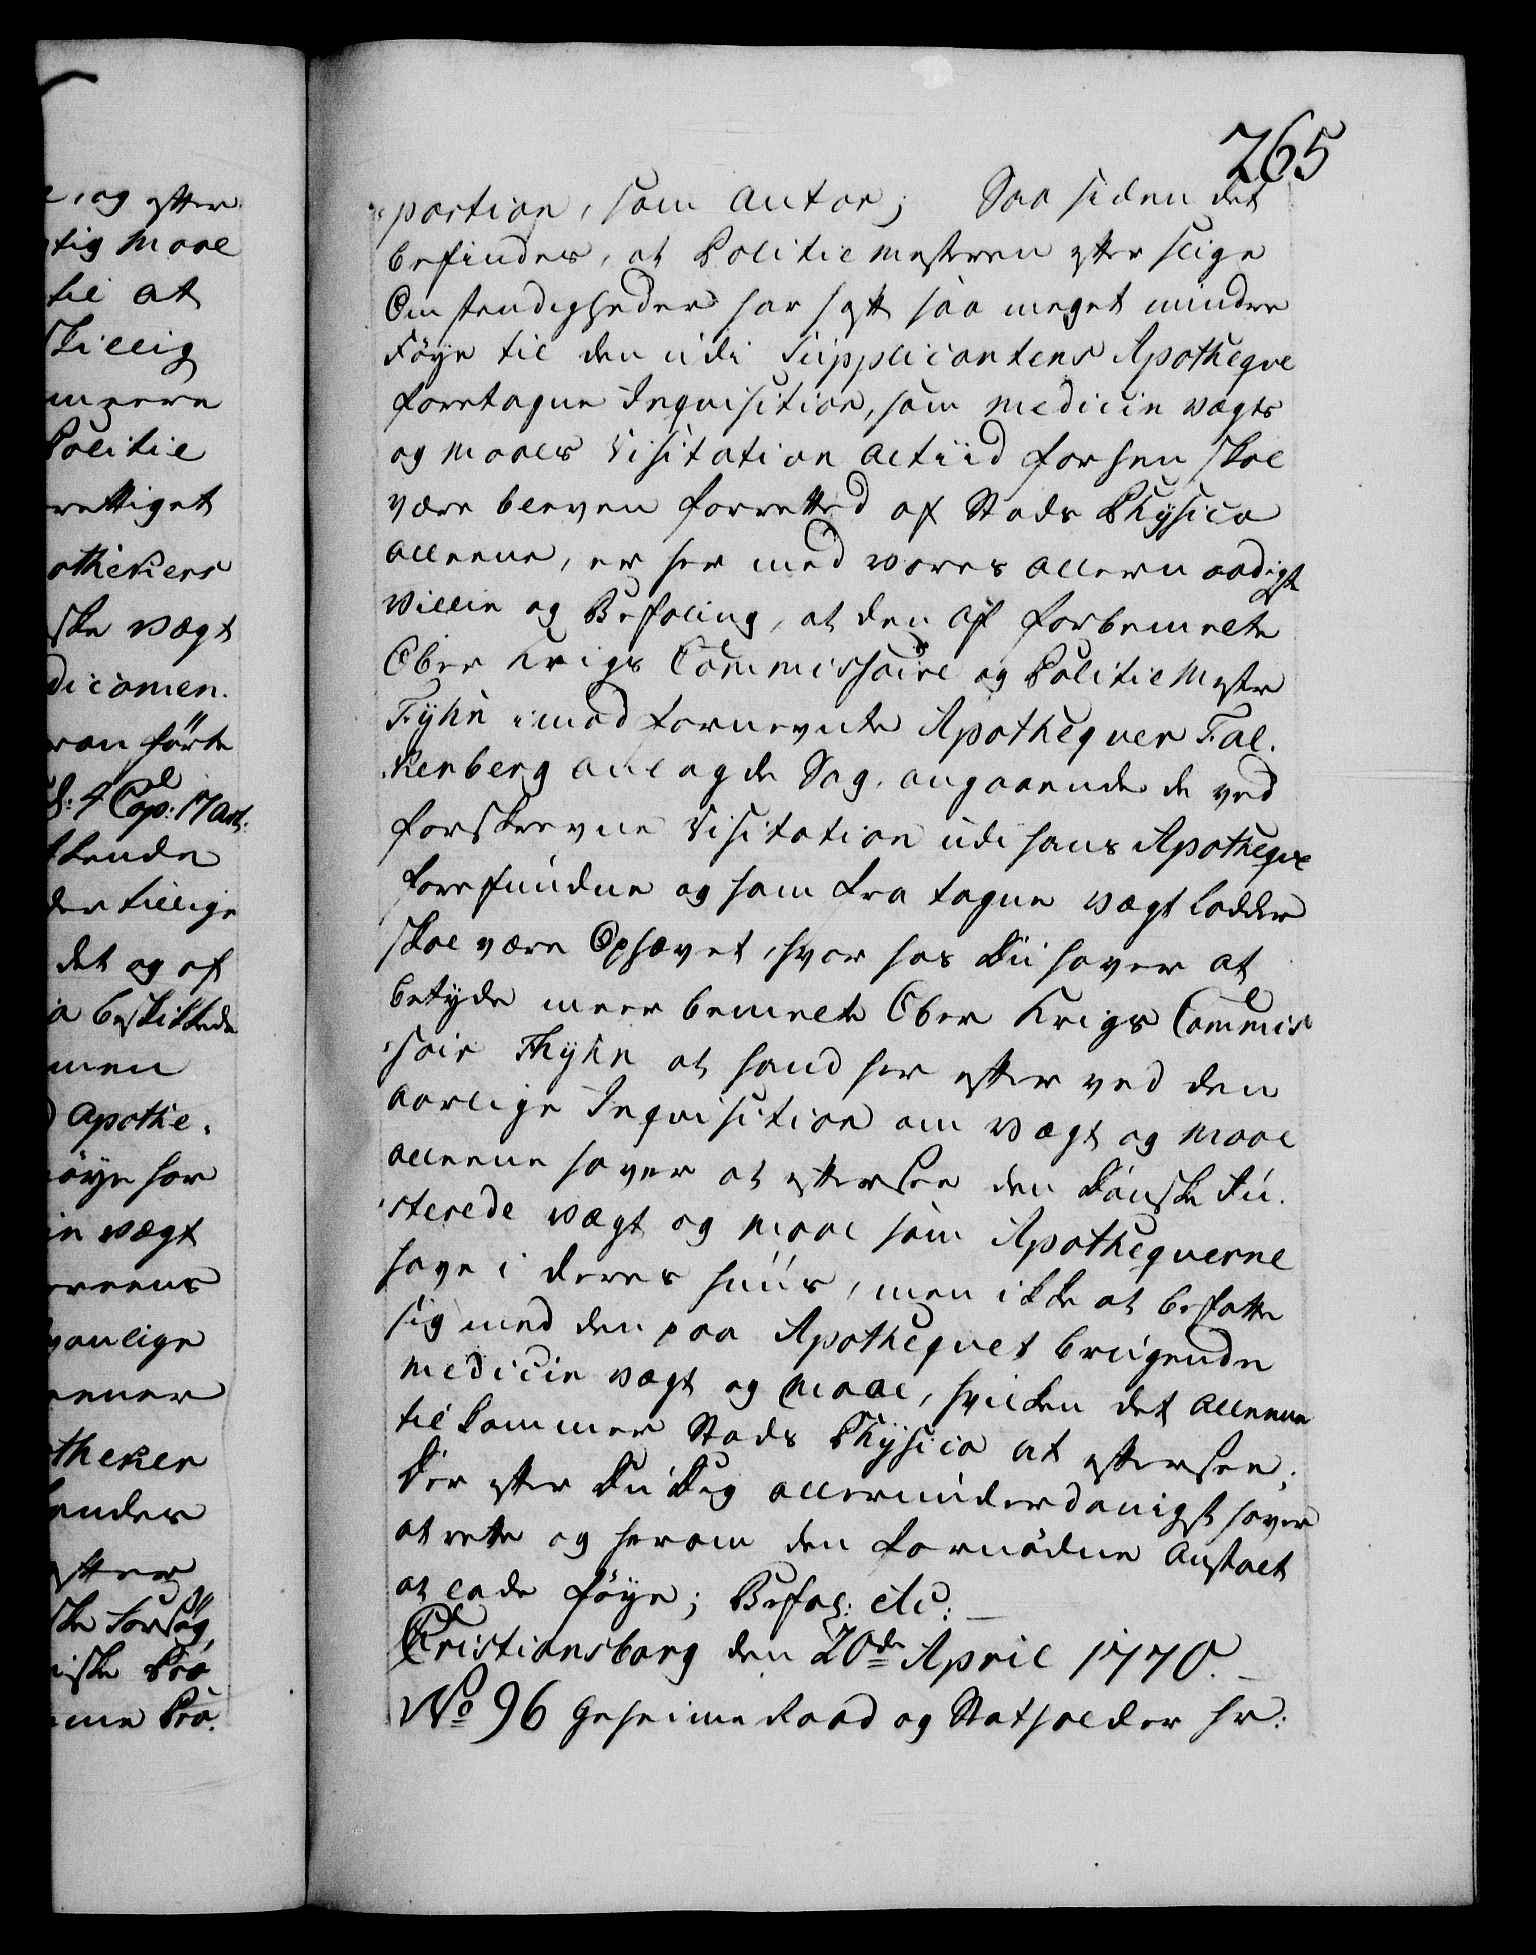 265
portion, som Antor; Saa siden det
befindes, at Politiemesteren efter slige
Omstendigheder har haft saa meget mindre
Føye til den udi Supplicantens Apotheqve
foretagne Inqvisition, som medicin vægts
og Maals Visitation altiid forhen skal
være bleven forretted af Stads Physico
alleene, er her med vores allernaadigste
Villie og Befaling, at den af forbemelte
Ober Krigs Commissaire og Politie Mester
Fyhn imod fornevnte Apotheqver Fal-
kenberg anlagde Sag, angaaende de ved
forskrevne Visitation udi hans Apotheqve
forefundne og ham fra tagne vægt Lodder
skal være Ophævet, hvor hos Du haver at
betyde meerbemelte Ober Krigs Commis
sair Fhyhn at hand her efter ved den
aarlige Inqvisition om vægt og Maal
alleene haver at eftersee den danske Ju-
sterede vægt og Maal som Apotheqverne
have i deres huus, men ikke at befatte
sig med den paa Apotheqvet brugende
medicin vægt og Maal, hvilken det alleene
tilkommer Stads Physico at eftersee;
Der efter Du Dig allerunderdanigst haver
at rette og herom den fornødne Anstalt
at lade føye; Befal: etc:
Christiansborg den 20de April 1770.
No 96 Geheime Raad og Statholder Hr:
e, og efter
tig Maal
til at
skillig
meere
Politie
rettiget
othekers
ske vægt
dicamen-
ran førte
4 Cap: 17 Art:
kende
der tillige
det og af
a beskikkede
men
Apothe-
øye har
in vægt
ereens
vanlige
theker
ender
efter
ske forsøg
iske Pro
me Pro-